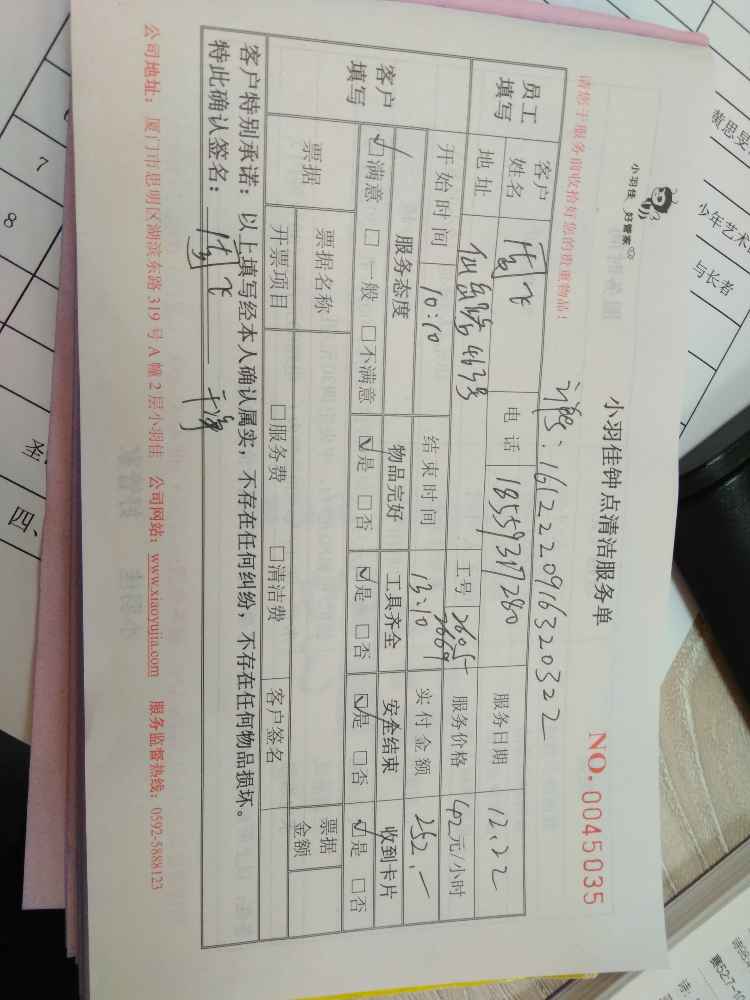 小羽佳 好管家
小羽佳钟点清洁服务单
NO. 0045035
请您于服务前收拾好您的贵重物品!
1612220916320322
员工填写
客户姓名
电话 18559317280
服务日期 12.22
地址 仙岳路4638
工号 26051 2669
服务价格 42元/小时
开始时间 10:10
结束时间 13:10
实付金额 252.一
客户填写
服务态度 物品完好 工具齐全 安全结束 收到卡片
☑满意 □一般 □不满意 ☑是 □否 ☑是 □否 ☑是 □否 ☑是 □否
票据
票据名称
票据金额
开票项目 □服务费 □清洁费 客户签名
客户特别承诺:以上填写经本人确认属实,不存在任何纠纷,不存在任何物品损坏。
特此确认签名:
公司地址:厦门市思明区湖滨东路 319 号 A 幢 2 层小羽佳 公司网站:www.xiaoyujia.com 服务监督热线:0592-5888123
7
8
四、
少年艺术
与长者